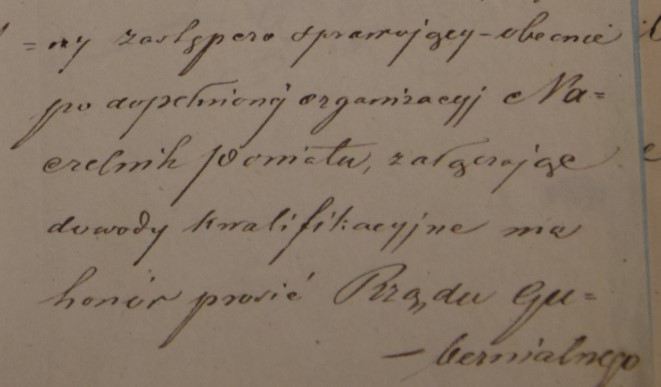 =ny zastępczo sprawujący-obecnie
po dopełnionéj organizacyj Na=
czelnik Powiatu, załączając
dowody kwalifikacyjne ma
honór prosić Rządu Gu=
– bernialnego